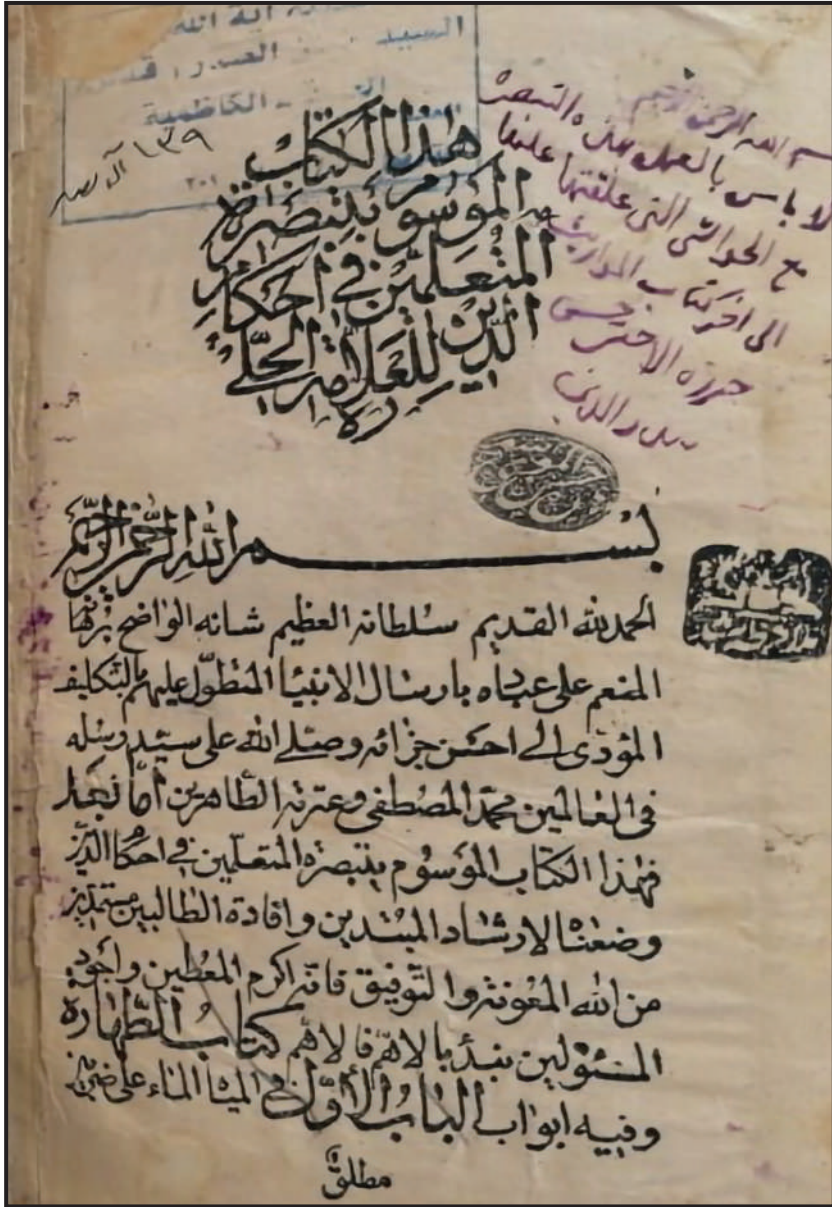 آية الله
السيد الصدر
الكاظمية
١٣٩
٢٠١
بسم الله الرحمن الرحيم
لا باس بالعمل بهذه التبصرة
مع الحواشي التي علقتها عليها
الى اخر كتاب المواريث
حرره الاحقر
صدر الدين
هذا الكتاب
الموسوم بتبصرة
المتعلمين في احكام
الدين للعلامة الحلي
ره
بسم الله الرحمن الرحيم
الحمد لله القديم سلطانه العظيم شانه الواضح برهانه
المنعم على عباده بارسال الانبيا المتطول عليهم بالتكليف
المؤدى الى احسن جزائه وصلى الله على سيد رسله
في العالمين محمد المصطفى وعترته الطاهرين اما بعد
فهذا الكتاب الموسوم بتبصرة المتعلمين في احكام الدين
وضعناه لارشاد المبتدين وافادة الطالبين مستمدين
من الله المعونة والتوفيق فانه اكرم المعطين واجود
المسئولين نبدأ بالاهم فالاهم كتاب الطهارة
وفيه ابواب الباب الأول في المياه الماء على ضربين
مطلق